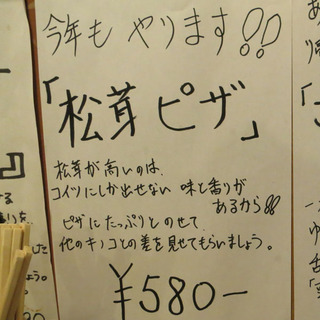 今年も やります!!
「松茸ピザ」
松茸が高いのは、
コイツにしか出せない 味と香りが
あるから!!
ピザにたっぷりとのせて、
他のキノコとの差を見せてもらいましょう。
¥580-